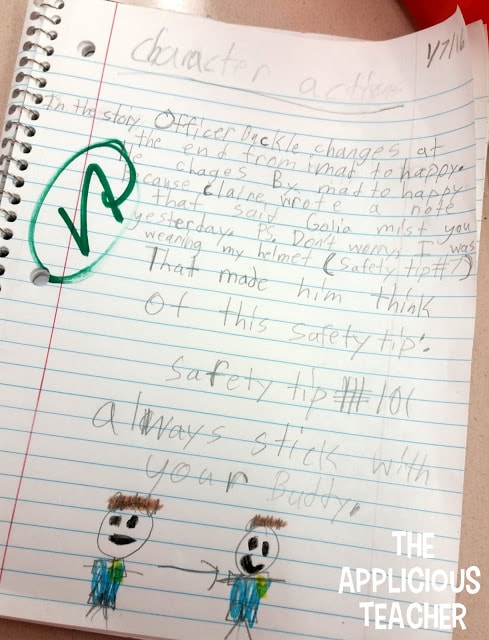 1/7/16
character actions
In the story Officer Buckle changes at
the end from mad to happy.
He chages By mad to happy
because Claire wrote a note
that said Golia mist you
yesterday. PS. Don't worry, I was
wearing my helmet (Safety tip#7)
That made him think
Of this safety tip:
Safety tip #101
always stick with
your Buddy.
THE
APPLICIOUS
TEACHER